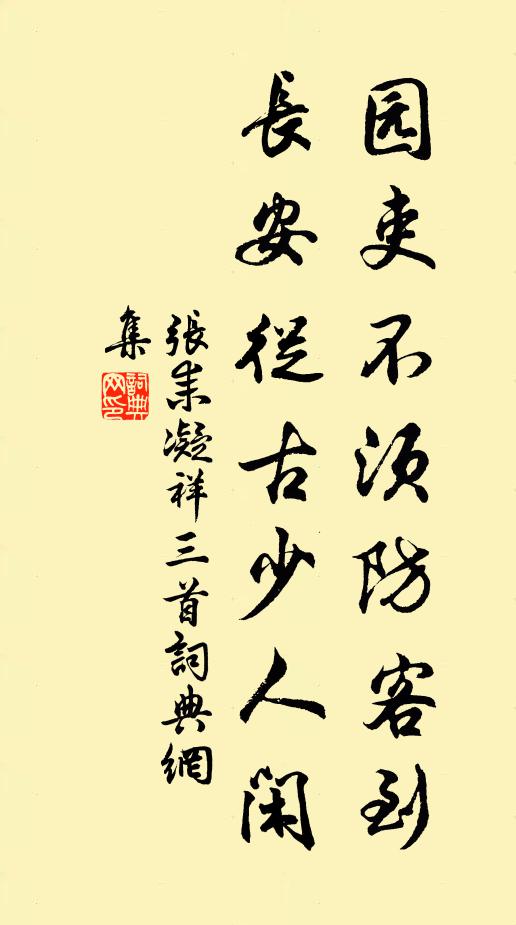 园吏不须防客到
長安從古少人閑
張耒凝祥三首詞典網
集
詞典
网印